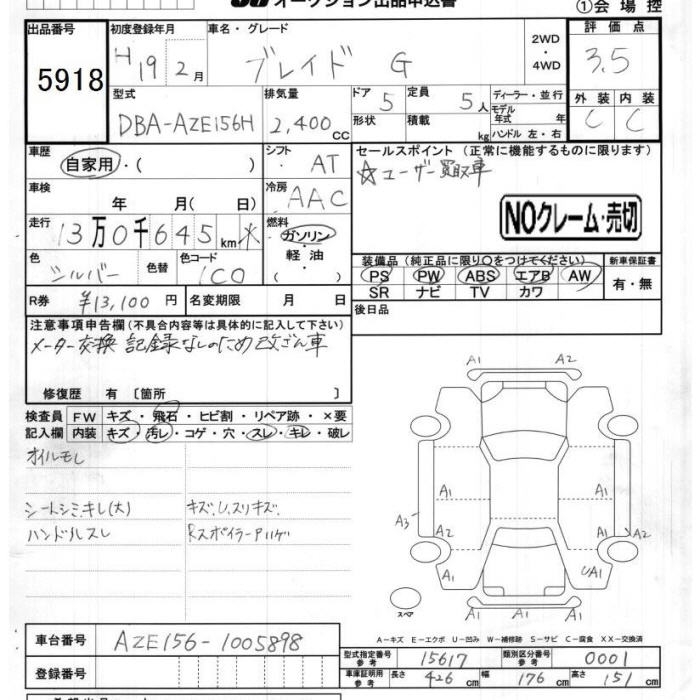 オークション出品申込書
①会場控
出品番号
5918
初度登録年月
H19 2月
車名・グレード
ブレイド G
2WD
・
4WD
評価点
3.5
型式
DBA-AZE156H
排気量
2,400 CC
ドア 5
形状
定員 5人
積載 kg
ディーラー・並行
モデル年式 年
ハンドル 左・右
外装 内装
C C
車歴
自家用・( )
シフト AT
車検
年 月( 日)
冷房 AAC
走行
13万0千645km ※
燃料
ガソリン・
軽油・
( )
色 シルバー
色替
色コード 1C0
R券 ¥13,100円
名変期限 月 日
セールスポイント(正常に機能するものに限ります)
☆ユーザー買取車
NOクレーム・売切
装備品(純正品に限り○をつけてください)
新車保証書
PS PW ABS エアB AW
有・無
SR ナビ TV カワ
後日品
注意事項申告欄(不具合内容等は具体的に記入して下さい)
メーター交換 記録なしのため改ざん車
修復歴 有〔箇所 〕
検査員
記入欄
FW キズ・飛石・ヒビ割・リペア跡・×要
内装 キズ・汚レ・コゲ・穴・スレ・キレ・破レ
オイルモレ
シートシミ、キレ(大)
キズ、U、スリキズ、
ハンドルスレ
Rスポイラーハゲ
A1 A2
A1
A1 A1
A3 A1 A1
A2 A2
A1 UA1
A1 A1
スペア
A-キズ E-エクボ U-凹み W-補修跡 S-サビ C-腐食 XX-交換済
車台番号
AZE156-1005898
登録番号
型式指定番号 参考 15617
類別区分番号 参考 0001
車庫証明用 参考 長さ 426cm 幅 176cm 高さ 151cm